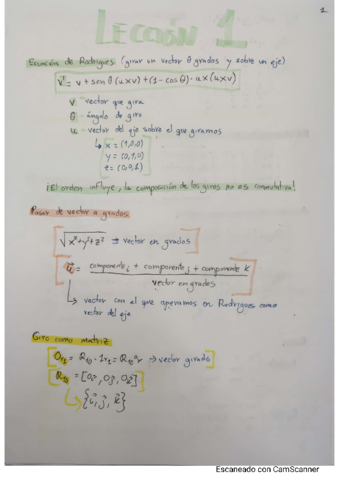 1
LECCIÓN 1
Ecuación de Rodrigues (girar un vector θ grados y sobre un eje)
v' = v + sen θ (u x v) + (1 - cos θ) · u x (u x v)
v vector que gira
θ ángulo de giro
u vector del eje sobre el que giramos
↳ x = (1,0,0)
y = (0,1,0)
z = (0,0,1)
¡El orden influye, la composición de los giros no es conmutativa!
Pasar de vector a grados
√x²+y²+z² → vector en grados
u = componente i + componente j + componente k
vector en grados
↳ vector con el que operamos en Rodrigues como
vector del eje
Giro como matriz
→ vector girado
Escaneado con CamScanner